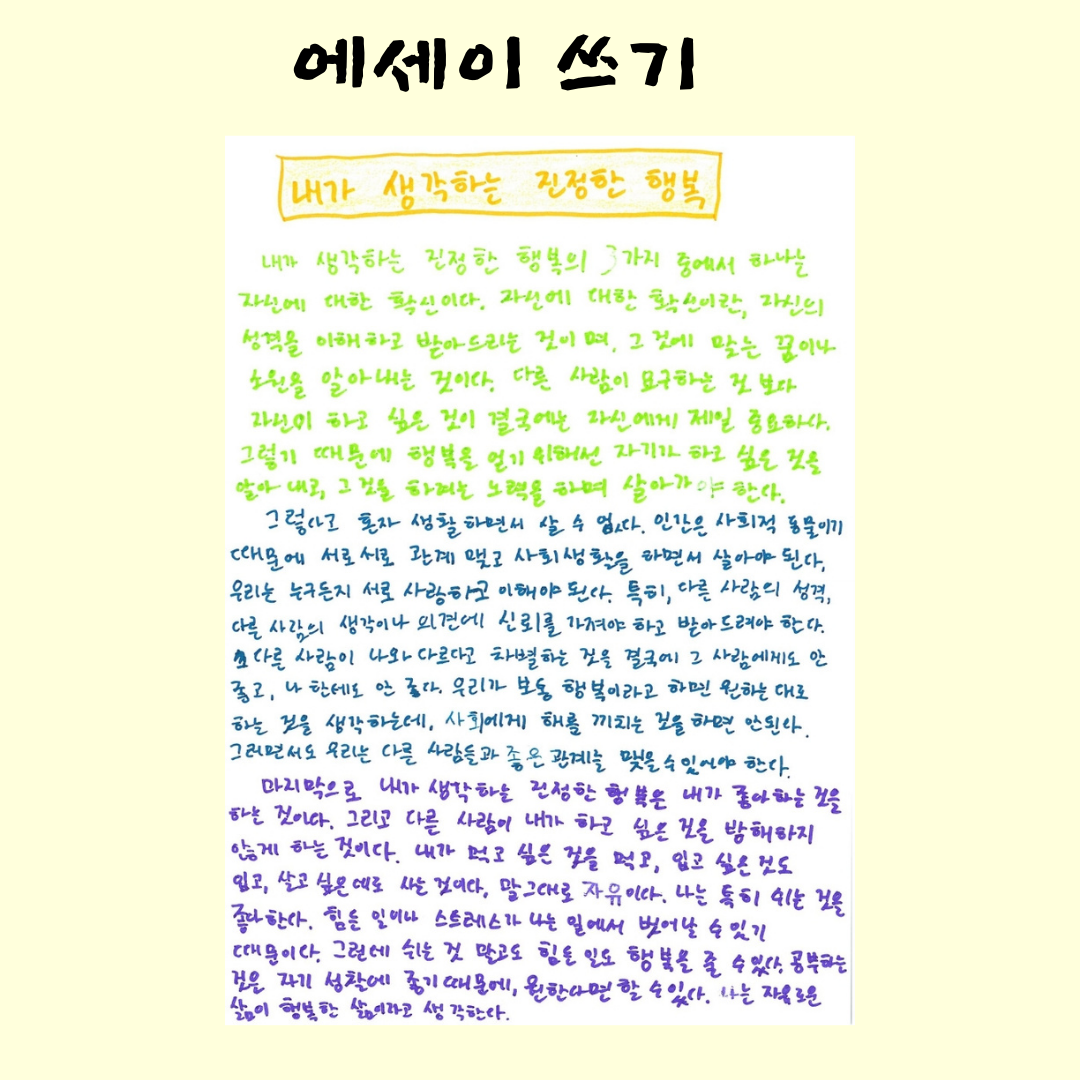 에세이 쓰기
내가 생각하는 진정한 행복
내가 생각하는 진정한 행복의 3가지 중에서 하나는
자신에 대한 확신이다. 자신에 대한 확신이란, 자신의
성격을 이해하고 받아드리는 것이며, 그것에 맞는 꿈이나
소원을 알아내는 것이다. 다른 사람이 요구하는 것보다
자신이 하고 싶은 것이 결국에는 자신에게 제일 중요하다.
그렇기 때문에 행복을 얻기 위해선 자기가 하고 싶은 것을
알아 내고, 그것을 하려는 노력을 하며 살아가야 한다.
그렇다고 혼자 생활하면서 살 수 없다. 인간은 사회적 동물이기
때문에 서로서로 관계 맺고 사회생활을 하면서 살아야 된다,
우리는 누구든지 서로 사랑하고 이해야 된다. 특히, 다른 사람의 성격,
다른 사람의 생각이나 의견에 신뢰를 가져야 하고 받아드려야 한다.
다른 사람이 나와 다르다고 차별하는 것은 결국에 그 사람에게도 안
좋고, 나 한테도 안 좋다. 우리가 보통 행복이라고 하면 원하는 대로
하는 것을 생각하는데, 사회에게 해를 끼치는 것을 하면 안된다.
그러면서도 우리는 다른 사람들과 좋은 관계를 맺을 수 있어야 한다.
마지막으로 내가 생각하는 진정한 행복은 내가 좋아하는 것을
하는 것이다. 그리고 다른 사람이 내가 하고 싶은 것을 방해하지
않게 하는 것이다. 내가 먹고 싶은 것을 먹고, 입고 싶은 것도
입고, 살고 싶은데로 사는 것이다, 말그대로 자유이다. 나는 특히 쉬는 것을
좋다한다. 힘든 일이나 스트레스가 나는 일에서 벗어날 수 있기
때문이다. 그런데 쉬는 것 말고도 힘든 일도 행복을 줄 수 있다. 공부하는
것은 자기 성찰에 좋기 때문에, 원한다면 할 수 있다. 나는 자유로운
삶이 행복한 삶이라고 생각한다.